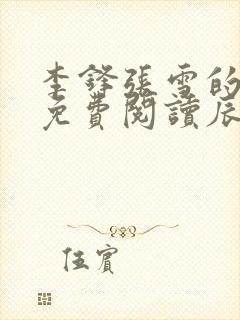 李鋒張雪的
免費閱讀辰
伍賓